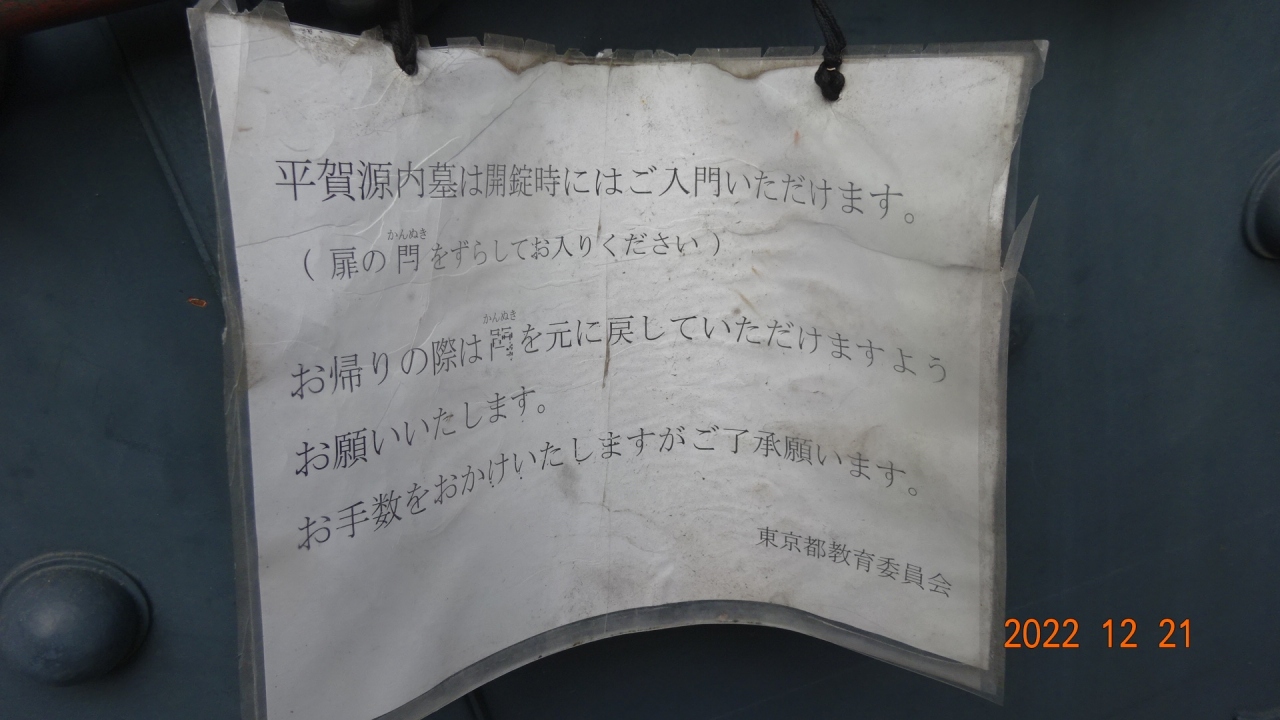 平賀源内墓は開錠時にはご入門いただけます。
(扉の閂をずらしてお入りください)
かんぬき
お帰りの際は閂を元に戻していただけますよう
かんぬき
お願いいたします。
お手数をおかけいたしますがご了承願います。
東京都教育委員会
2022 12 21